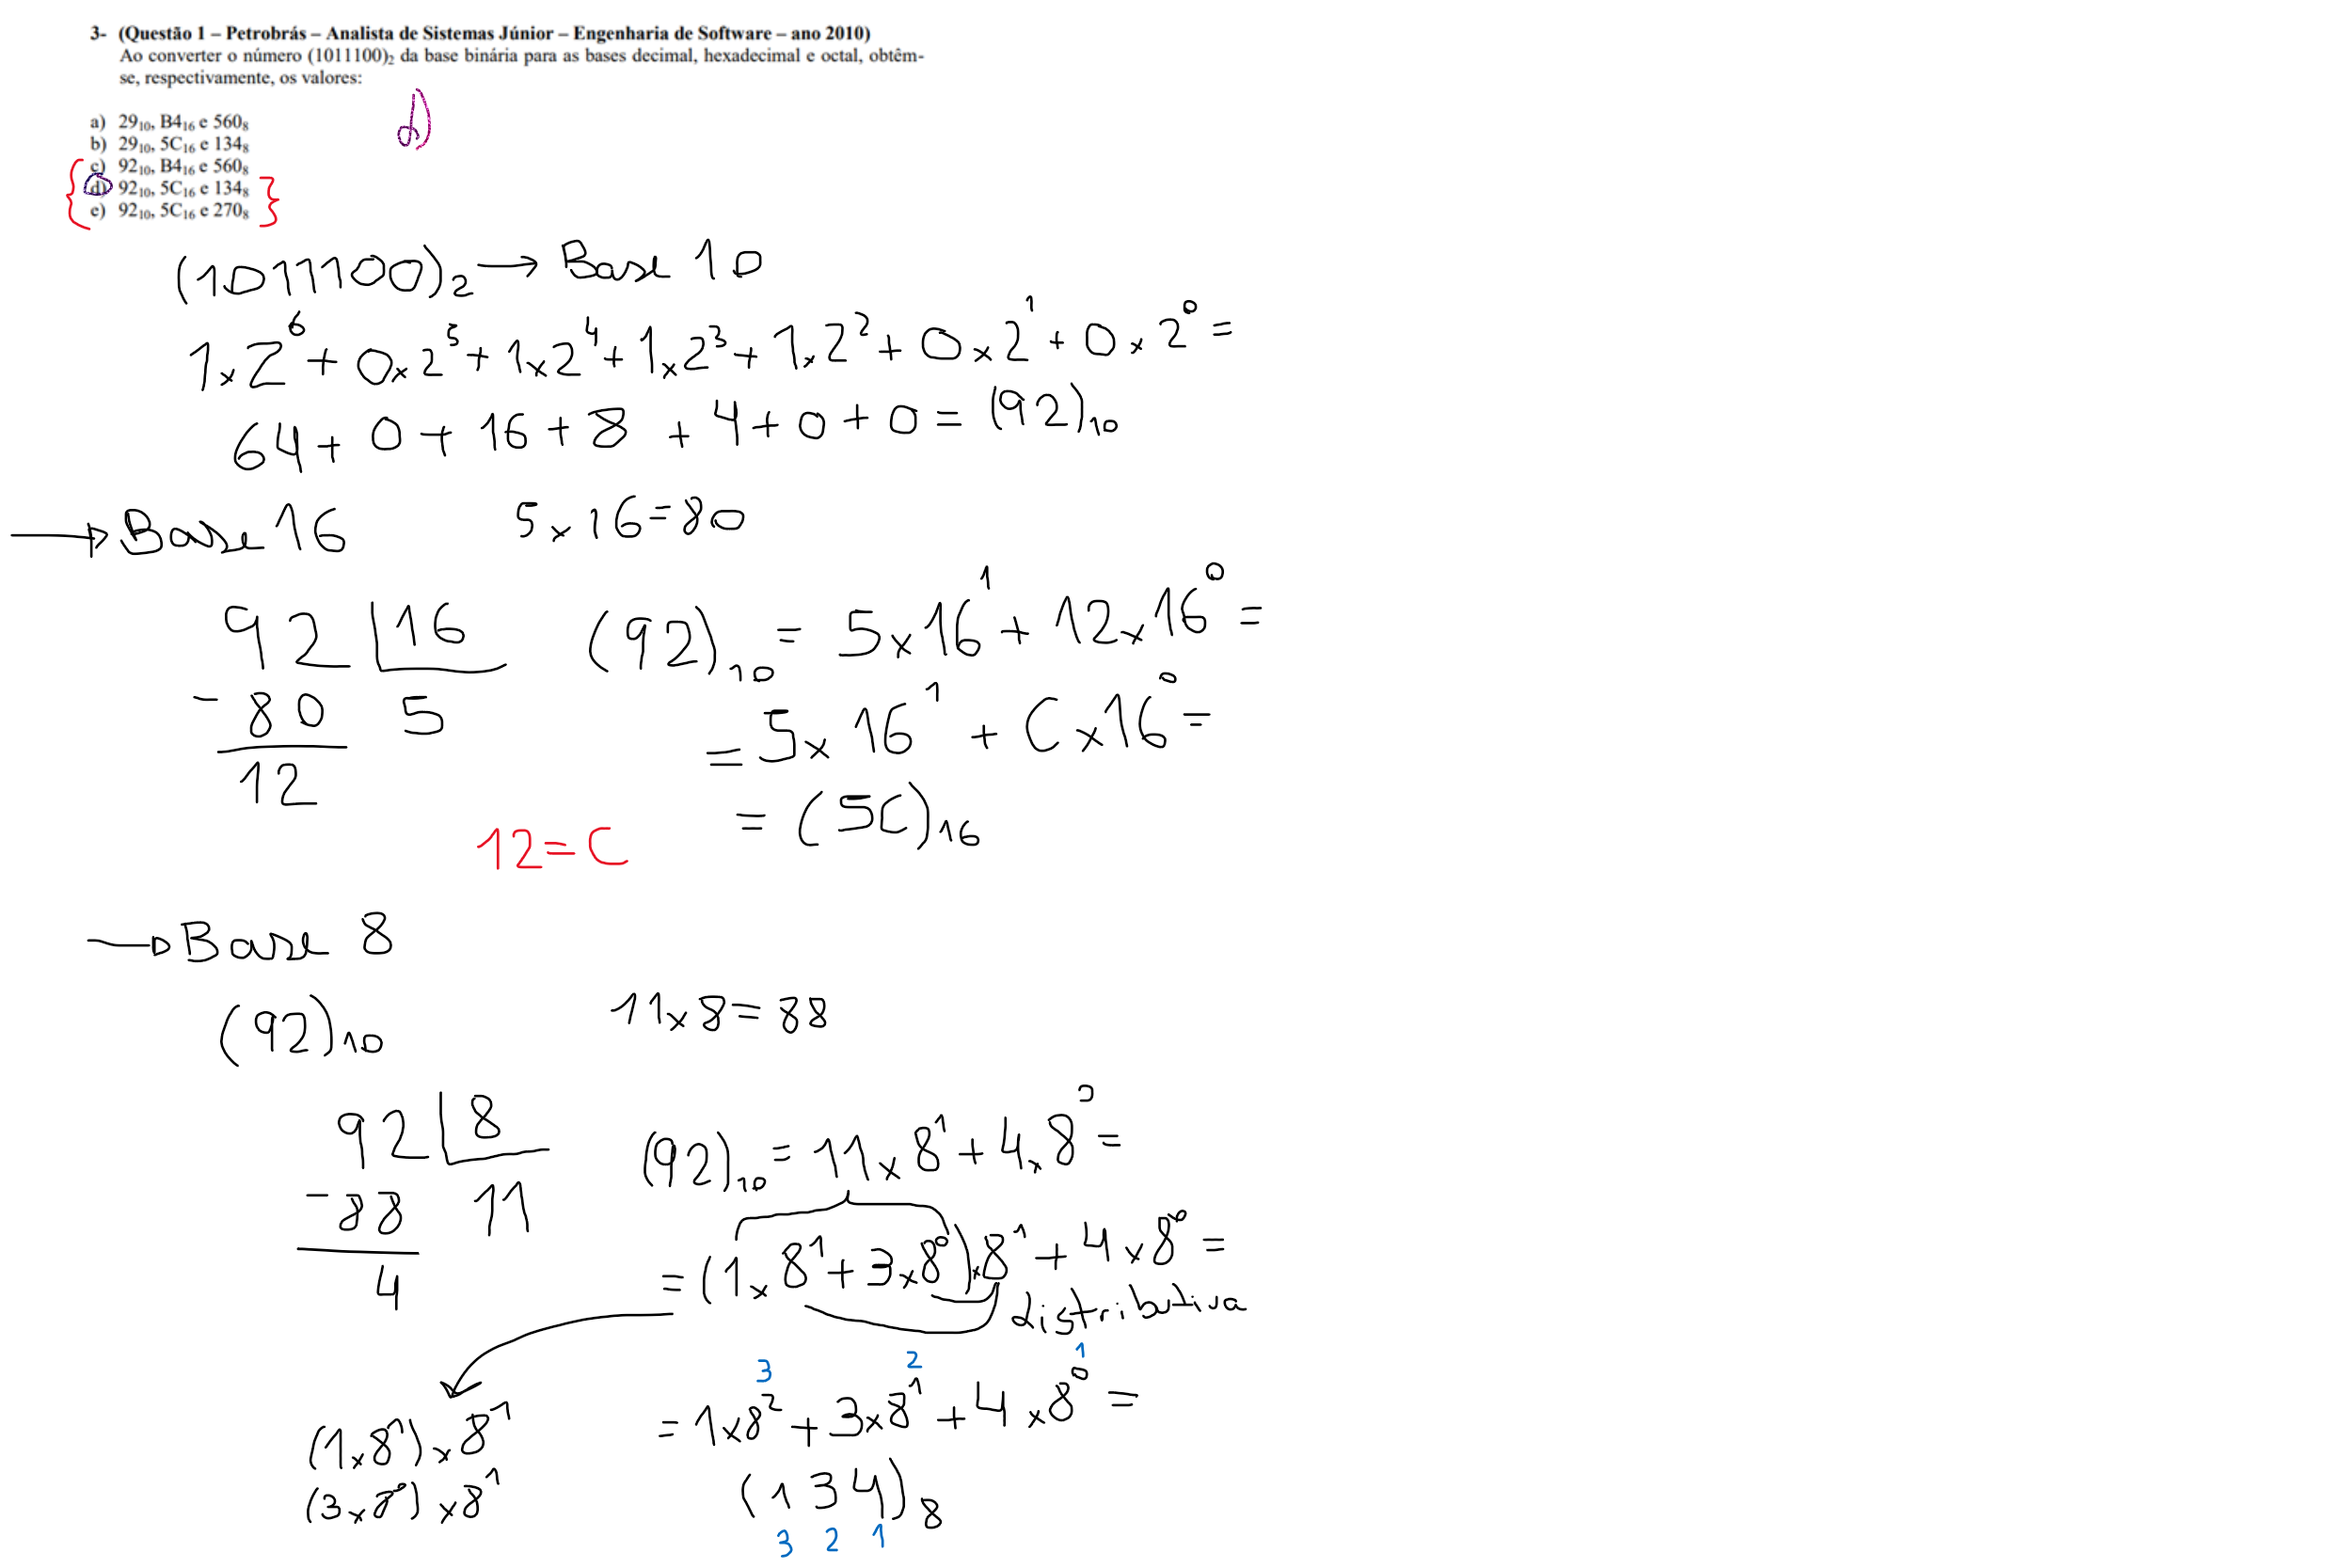 3- (Questão 1 – Petrobrás – Analista de Sistemas Júnior – Engenharia de Software – ano 2010)
Ao converter o número (1011100)₂ da base binária para as bases decimal, hexadecimal e octal, obtêm-
se, respectivamente, os valores:
d)
a) 29₁₀, B4₁₆ e 560₈
b) 29₁₀, 5C₁₆ e 134₈
c) 92₁₀, B4₁₆ e 560₈
d) 92₁₀, 5C₁₆ e 134₈
e) 92₁₀, 5C₁₆ e 270₈
(1011100)₂ → Base 10
1×2⁶ + 0×2⁵ + 1×2⁴ + 1×2³ + 1×2² + 0×2¹ + 0×2⁰ =
64 + 0 + 16 + 8 + 4 + 0 + 0 = (92)₁₀
→ Base 16
5×16=80
92 | 16
- 80 5
12
(92)₁₀ = 5×16¹ + 12×16⁰ =
= 5×16¹ + C×16⁰ =
= (5C)₁₆
12=C
→ Base 8
(92)₁₀
11×8=88
92 | 8
- 88 11
4
(92)₁₀ = 11×8¹ + 4×8⁰ =
= (1×8¹ + 3×8⁰)×8¹ + 4×8⁰ =
distributiva
3 2 1
= 1×8² + 3×8¹ + 4×8⁰ =
(1×8¹)×8¹
(3×8⁰)×8¹
(134)₈
3 2 1